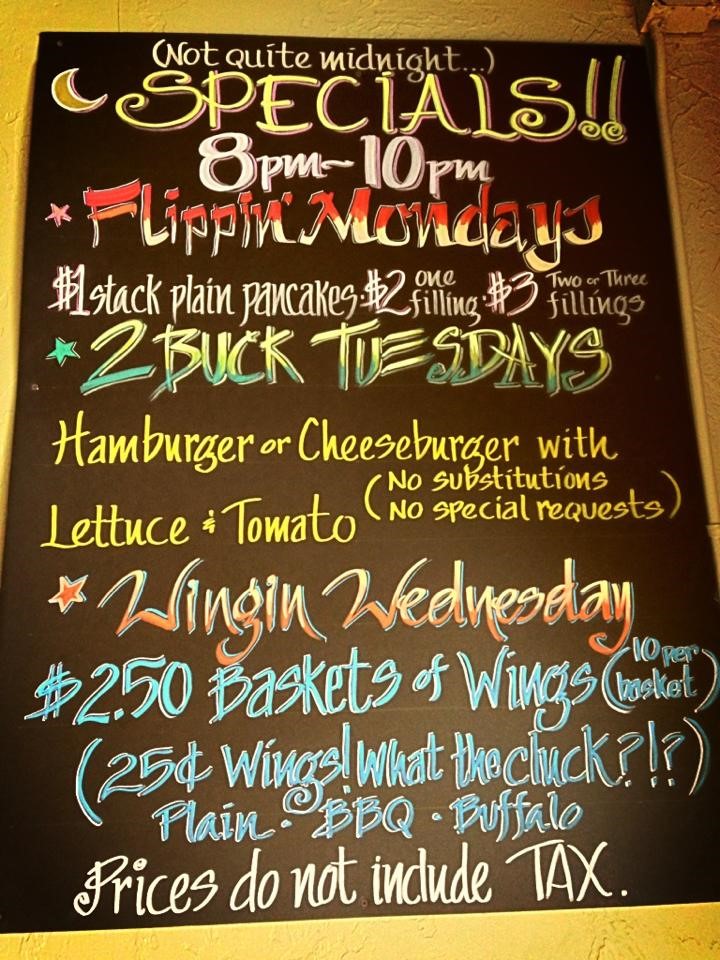 (Not quite midnight...)
SPECIALS!!
8pm~10pm
Flippin' Mondays
$1 stack plain pancakes · $2 one filling · $3 Two or Three fillings
2 BUCK TUESDAYS
Hamburger or Cheeseburger with
Lettuce & Tomato (No substitutions
No special requests)
Wingin Wednesday
$2.50 Baskets of Wings (10 per basket)
(25¢ Wings! What the cluck?!?)
Plain · BBQ · Buffalo
Prices do not include TAX.